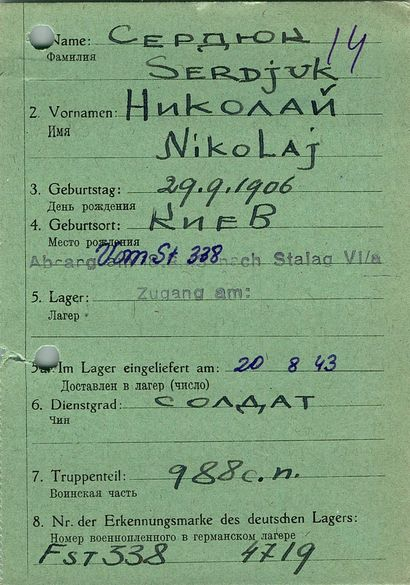 Name: СЕРДЮК 14
Фамилия
SERDJUK
2. Vornamen: НИКОЛАЙ
Имя
NIKOLAJ
3. Geburtstag: 29.9.1906
День рождения
4. Geburtsort: КИЕВ
Место рождения
Vom St. 338
Abgang nach Stalag VI/a
5. Lager: Zugang am:
Лагер
Im Lager eingeliefert am: 20 8 43
Доставлен в лагер (число)
6. Dienstgrad: СОЛДАТ
Чин
7. Truppenteil: 988с.п.
Воинская часть
8. Nr. der Erkennungsmarke des deutschen Lagers:
Номер военнопленного в германском лагере
FST 338 4719